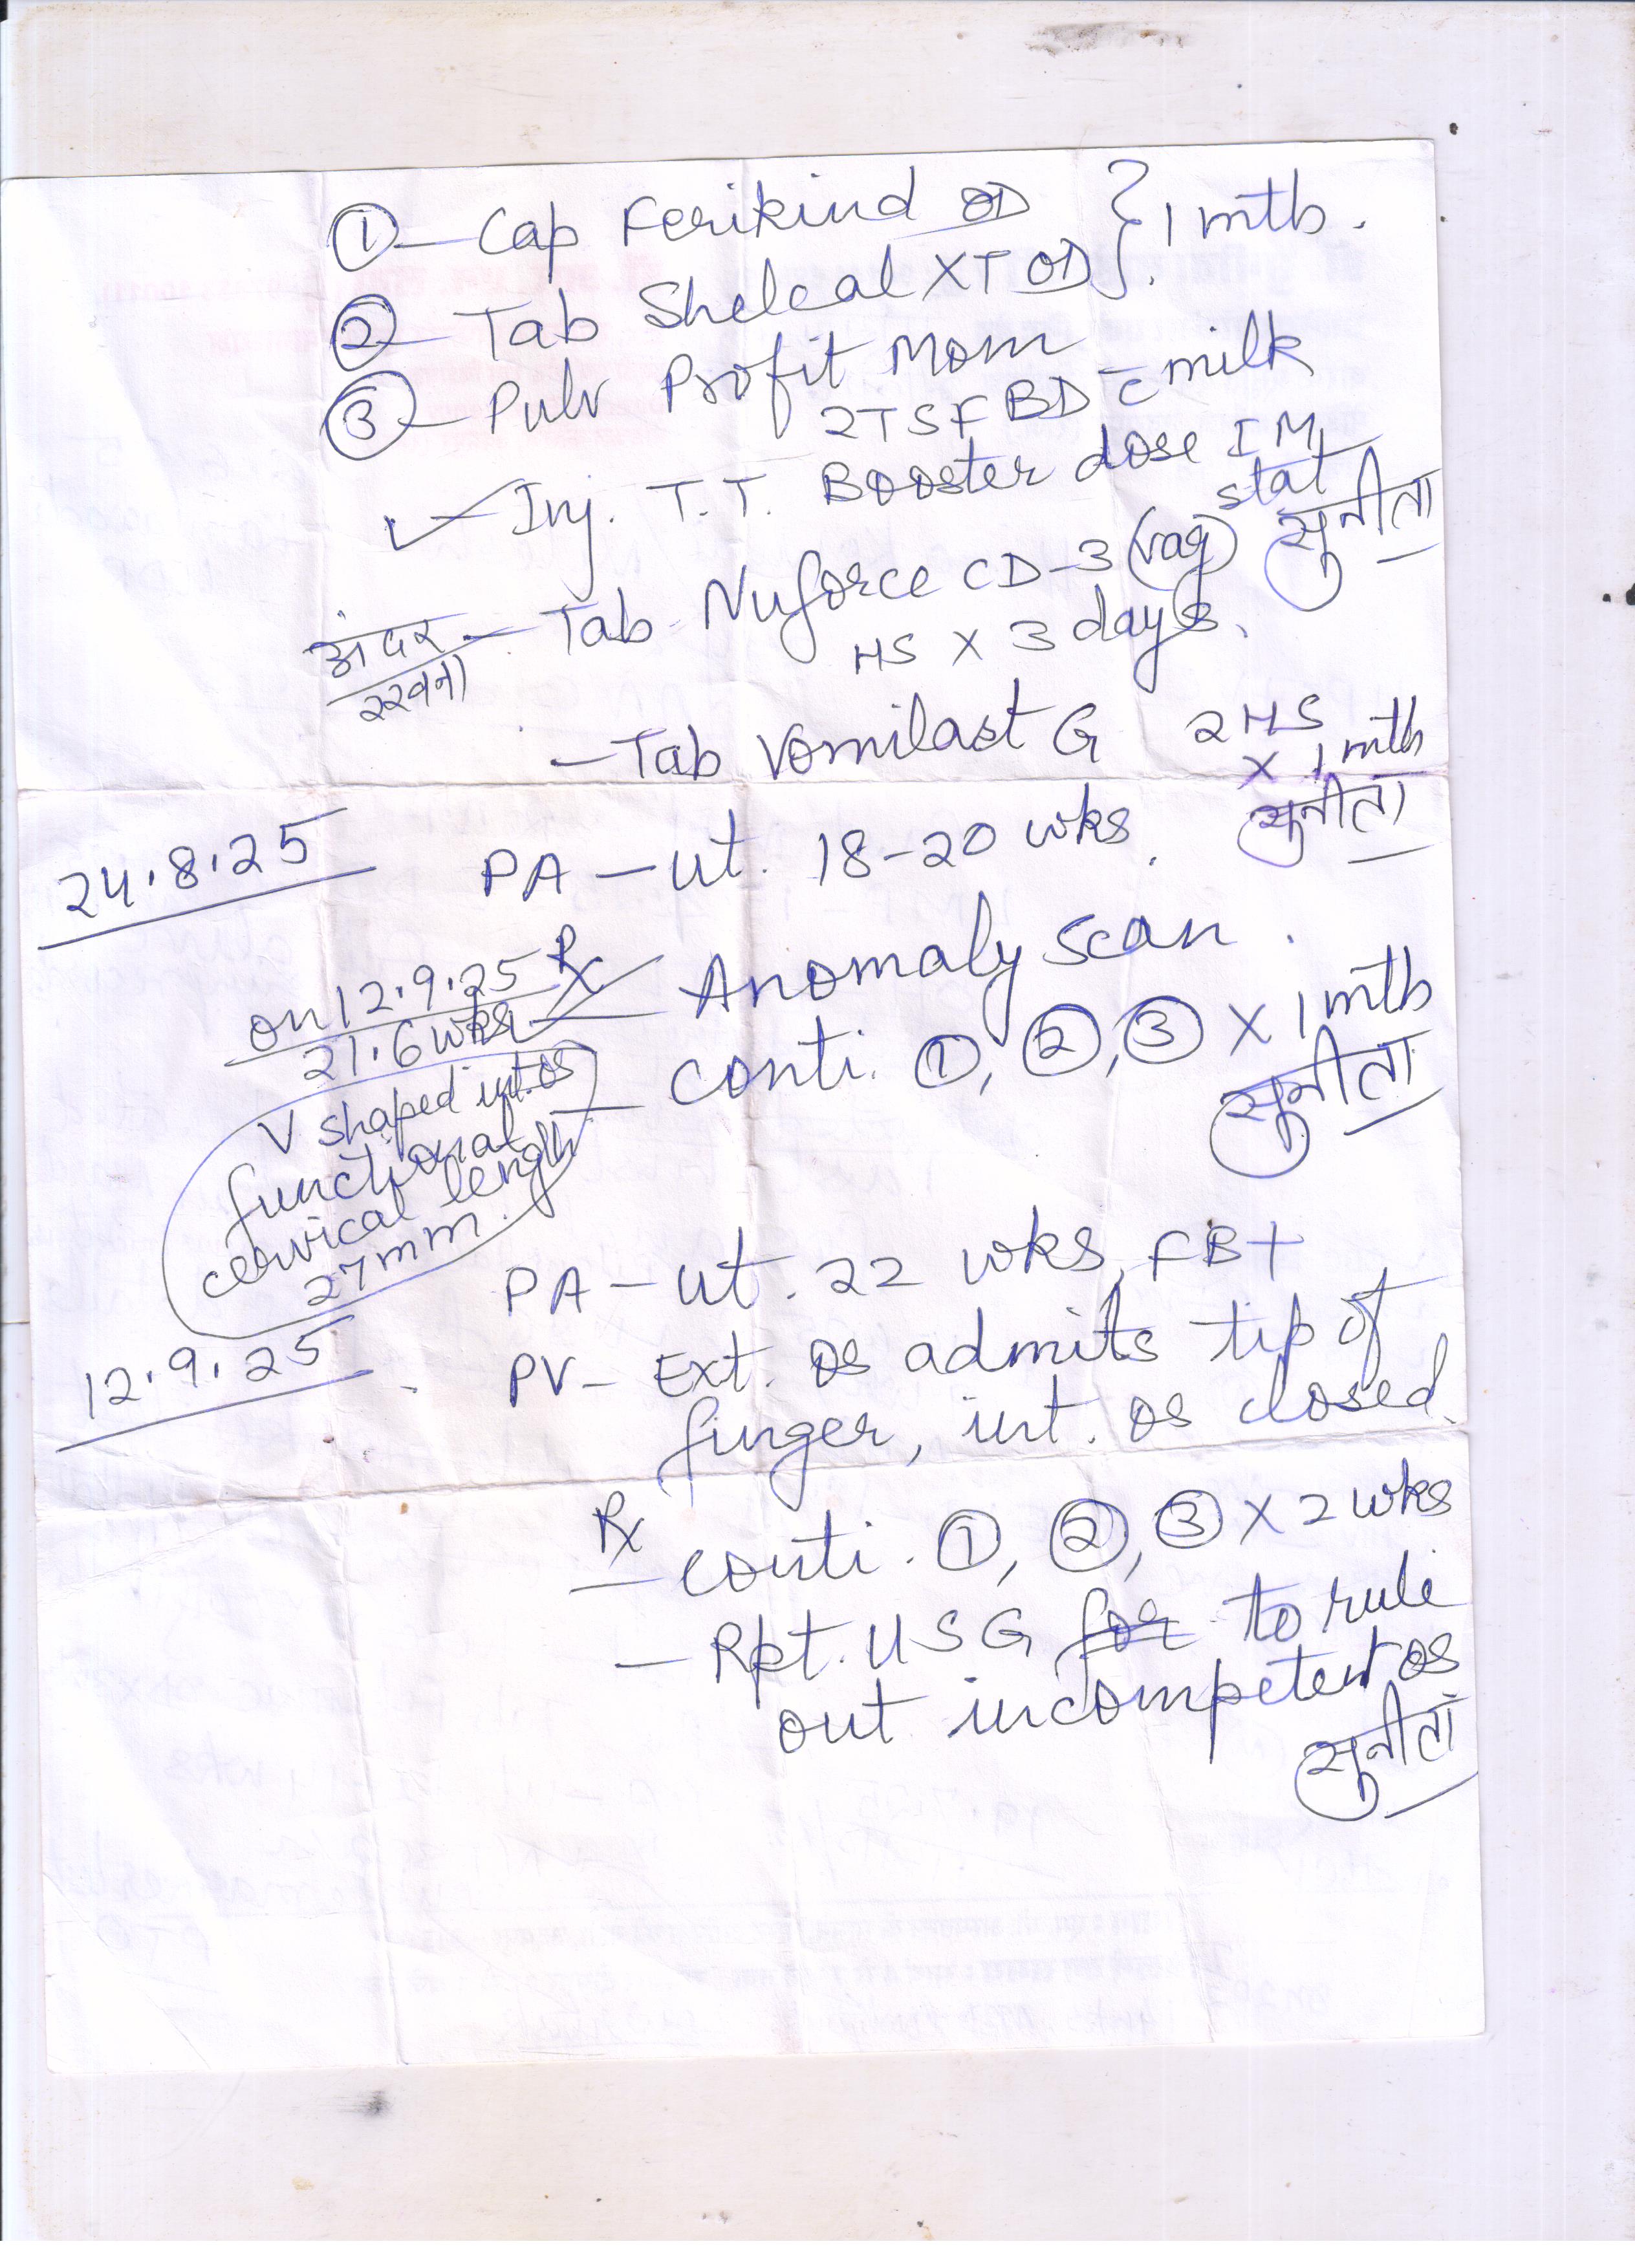 ① - Cap Ferikind OD } 1 mth.
② - Tab Shelcal XT OD
③ - Pulv Profit Mom
2TSF BD c̄ milk
✓ - Inj. T.T. Booster dose IM
stat
सुनीता
अंदर रखना - Tab. Nuforce CD-3 (vag)
HS X 3 days.
- Tab Vomilast G 2 HS
X 1 mth
सुनीता
24.8.25 PA - ut. 18-20 wks.
Rx
- Anomaly scan.
on 12.9.25
21.6 wks
- conti. ①, ②, ③ X 1 mth
सुनीता
V shaped int. os
functional
cervical length
27mm.
12.9.25
PA - ut. 22 wks, FB+
PV - Ext. os admits tip of
finger, int. os closed.
Rx
- conti. ①, ②, ③ X 2 wks
- Rpt. USG for to rule
out incompetent os
सुनीता